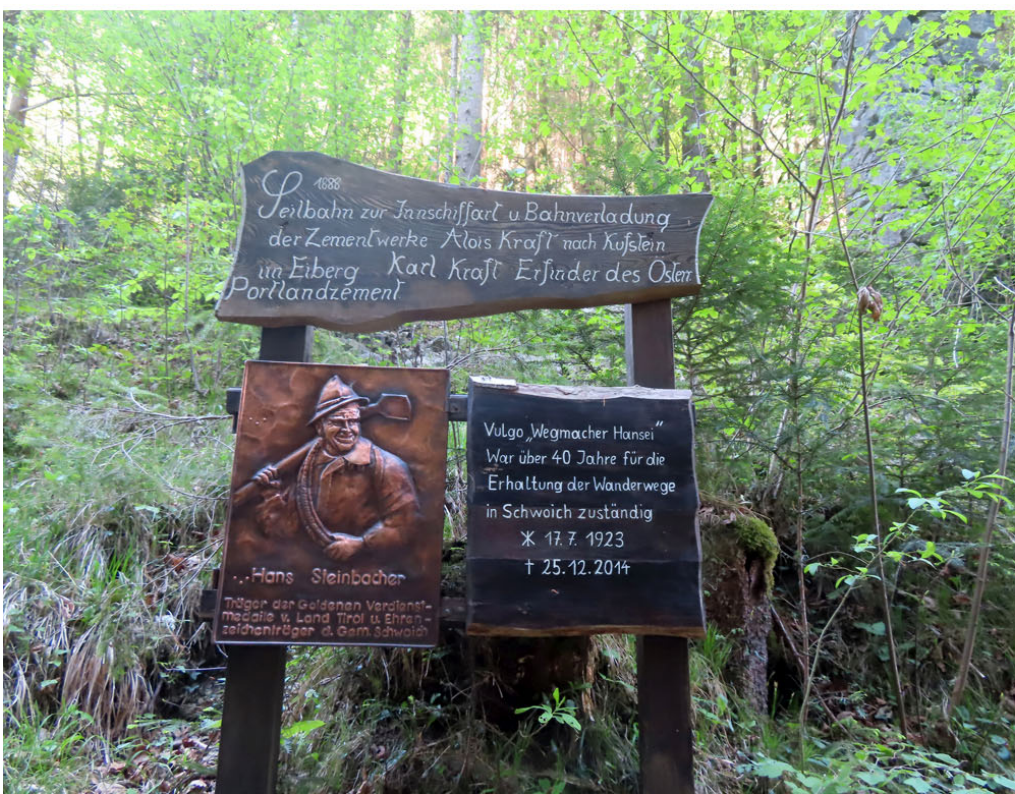 1888
Seilbahn zur Innschiffart u Bahnverladung
der Zementwerke Alois Kraft nach Kufstein
im Eiberg Karl Kraft Erfinder des Österr
Portlandzement
...Hans Steinbacher
Träger der Goldenen Verdienst-
medaile v. Land Tirol u. Ehren-
zeichenträger d. Gem. Schwoich
Vulgo „Wegmacher Hansei"
War über 40 Jahre für die
Erhaltung der Wanderwege
in Schwoich zuständig
* 17. 7. 1923
† 25.12.2014